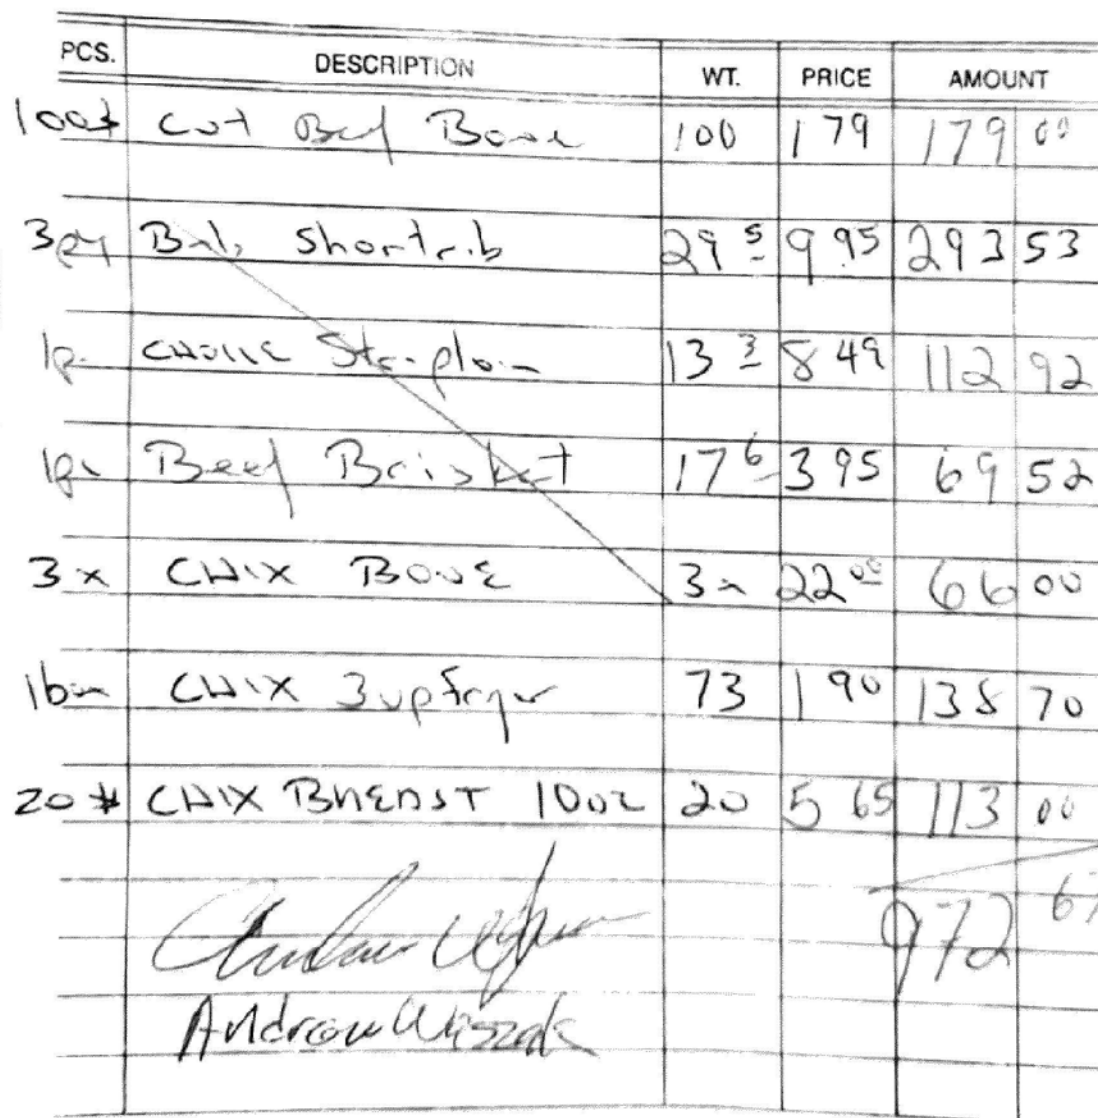 PCS. DESCRIPTION WT. PRICE AMOUNT
100# Cut Beef Bone 100 1 79 179 00
3 Shortrib 29 5 9 95 293 53
1 CHOICE 13 3 8 49 112 92
1 Beef Brisket 17 6 3 95 69 52
3x CHIX BONE 3x 22 00 66 00
1 CHIX 3up fryer 73 1 90 138 70
20# CHIX BREAST 10oz 20 5 65 113 00
972 67
Andrew